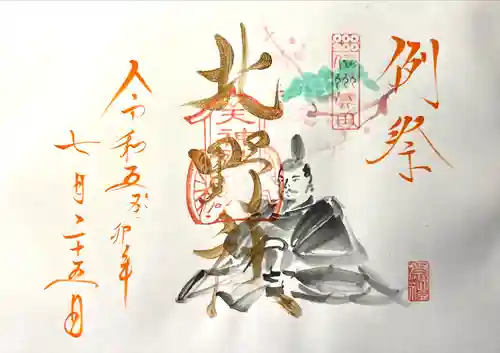 例祭
北野社
令和五癸卯年
七月二十五日